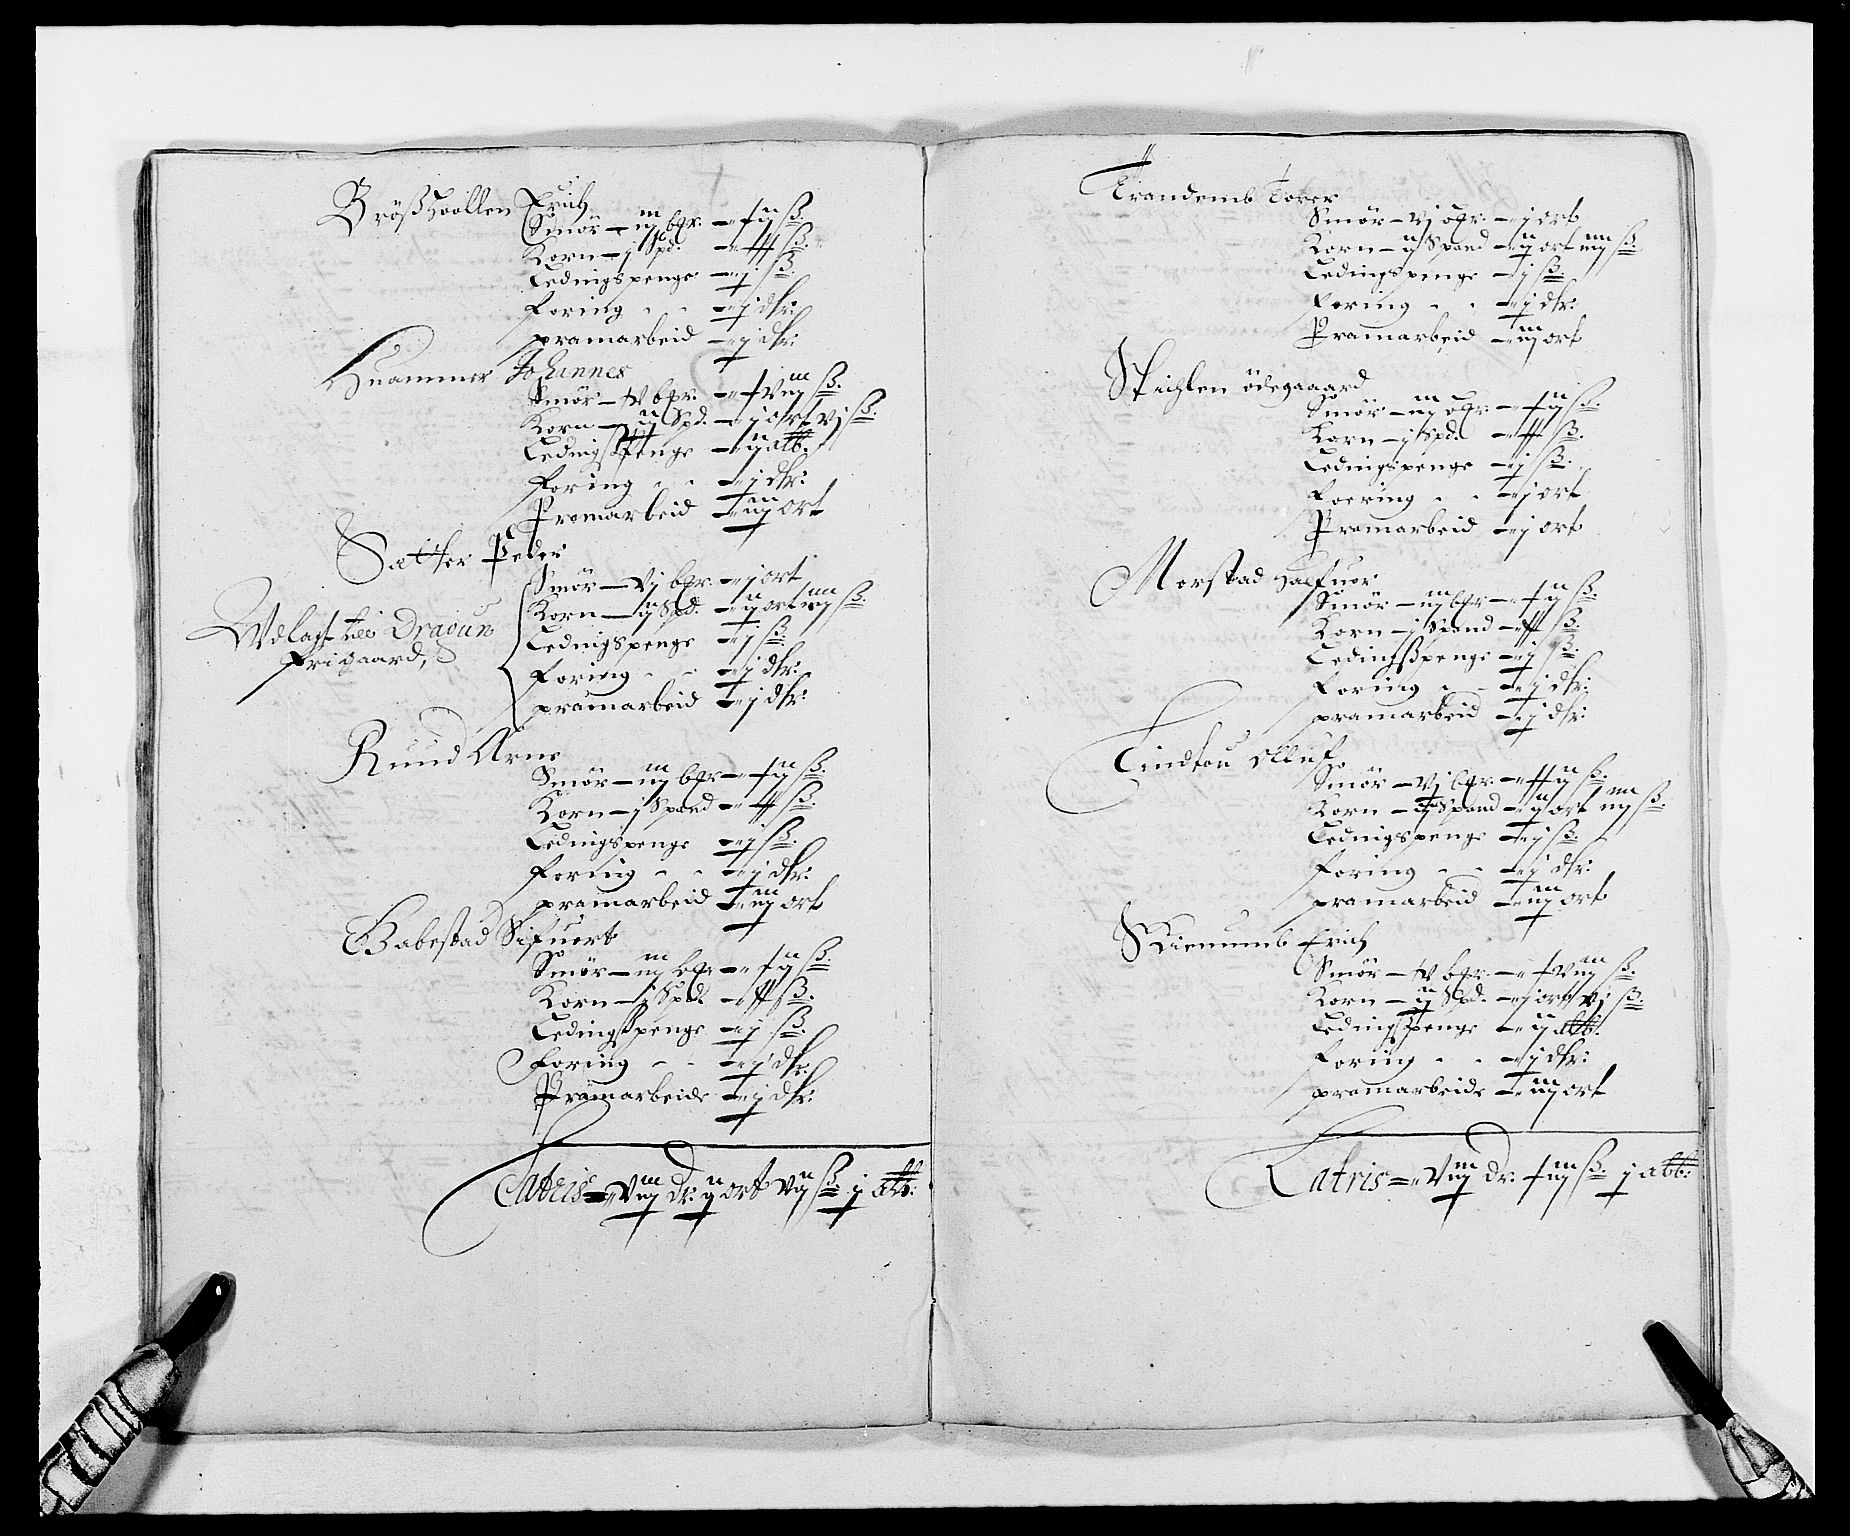 Brößhollen Erich
Smör - iij bgr: - xij ß:
Korn - j Spd: - xx ß:
Ledingspenge - j ß:
Foring - - j dlr:
pramarbeid - j dlr:
Huammer Johannes
Smör - iv bgr: - xviij ß:
Korn - ij Spd: - j ort vj ß:
Ledingspenge - ij alb:
Foring - - j dlr:
Pramarbeid - iij ort
Sætter Peder
Smör - vj bgr: - j ort
Korn - ij Spd: - ij ort iiij ß:
Ledingspenge - j ß:
Foring - - j dlr:
pramarbeid - j dlr:
Vdlagt til Dragoun
frigaard,
Ruud Arne
Smör - iij bgr - xij ß:
Korn - j Spand - xx ß:
Ledingspenge - j ß:
Foring - - j dlr:
pramarbeid - iij ort
Babestad Sifuert
Smör - iij bgr - xij ß:
Korn - j Spd: - xx ß:
Ledingßpenge - j ß:
Foring - - j dlr:
Pramarbeide - j dlr:
Latris = viij dr: ij ort vij ß: j alb:
Trandemb Torer
Smör - vj bgr: - j ort
Korn - ij Spand - ij ort iiij ß:
Ledingspenge - j ß:
Foring - - j dlr:
Pramarbeid - iij ort
Spichlen ödegaaard
Smör - iij bgr: - xij ß:
Korn - j Spd: - xx ß:
Ledingspenge - j ß:
Foering - - j ort
Pramarbeid - j ort
Morstad Halfuor
Smör - iij bgr - xij ß:
Korn - j Spand - xx ß:
Ledingßpenge - j ß:
Foring - - j dlr:
pramarbeid - j dlr:
Olluf
Smör - vj bgr: - xxij ß:
Korn - ij Spand - ij ort iiij ß:
Ledingspenge - j ß:
Foring - - j dlr:
pramarbeid - iij ort
Erich
Smör - iv bgr: - xviij ß:
Korn - ij Spd: - j ort vj ß:
Ledingspenge - ij alb:
Foring - - j dlr:
pramarbeide - iij ort
Latris = viij dr: xiij ß: j alb: